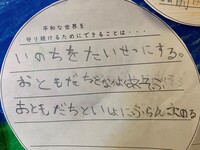 平和な世界を
守り続けるためにできることは・・・
いのちをたいせつにする。
おともだちとなかよく
おともだちといっしょにぶらんこにのる